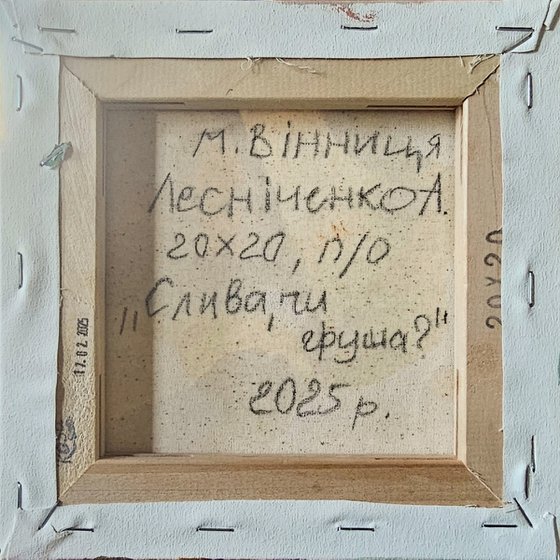 м. Вінниця
Лесніченко А.
20×20, п/о
"Слива, чи
груша?"
2025 р.
20×20
17.02.2025